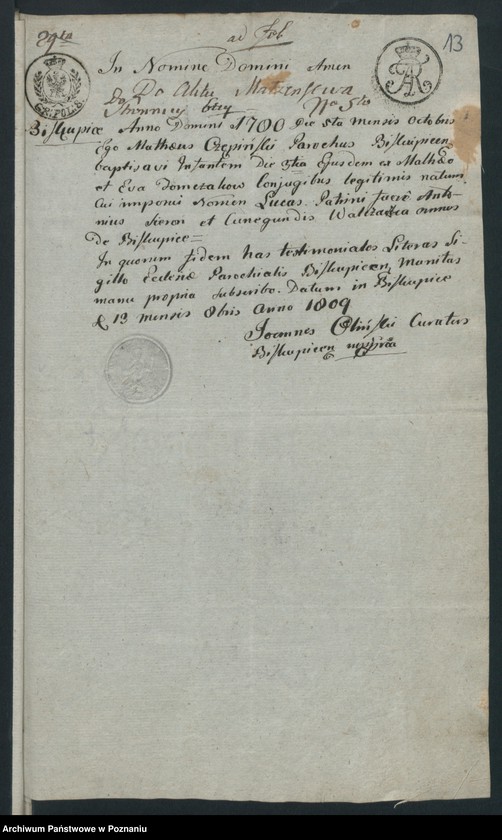 ad Feb
13
In Nomine Domini Amen
GR. POLS.
Do Aktu
No 5to
Biskupice Anno Domini 1780 Die 5ta Mensis Octobris
Ego Mathæus Parochus Biskupicen
baptisavi Infantem Die 3tia Ejusdem ex Mathæo
et Eva Domczakow Conjugibus legitimis natum
Cui imposui Nomen Lucas. Patrini fuere Anto-
nius et Cunegundis omnes
de Biskupice =
In quorum fidem has testimoniales Literas Si-
gillo Ecclesiæ Parochialis Biskupicen munitas
manu propria subscribo. Datum in Biskupice
d 13 mensis 8bris Anno 1809
Joannes Curatus
Biskupicen mppria
Archiwum Państwowe w Poznaniu